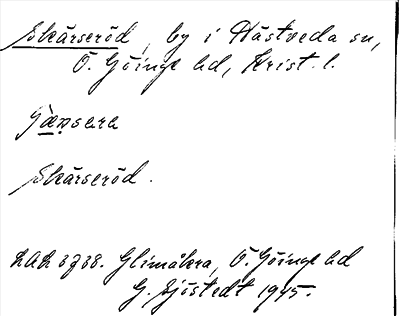 Skärseröd, by i Hästveda sn,
Ö. Göinge hd, Krist. l.
Skärseröd.
LAL 3738. Glimåkra, Ö. Göinge hd
G. Sjöstedt 1945.